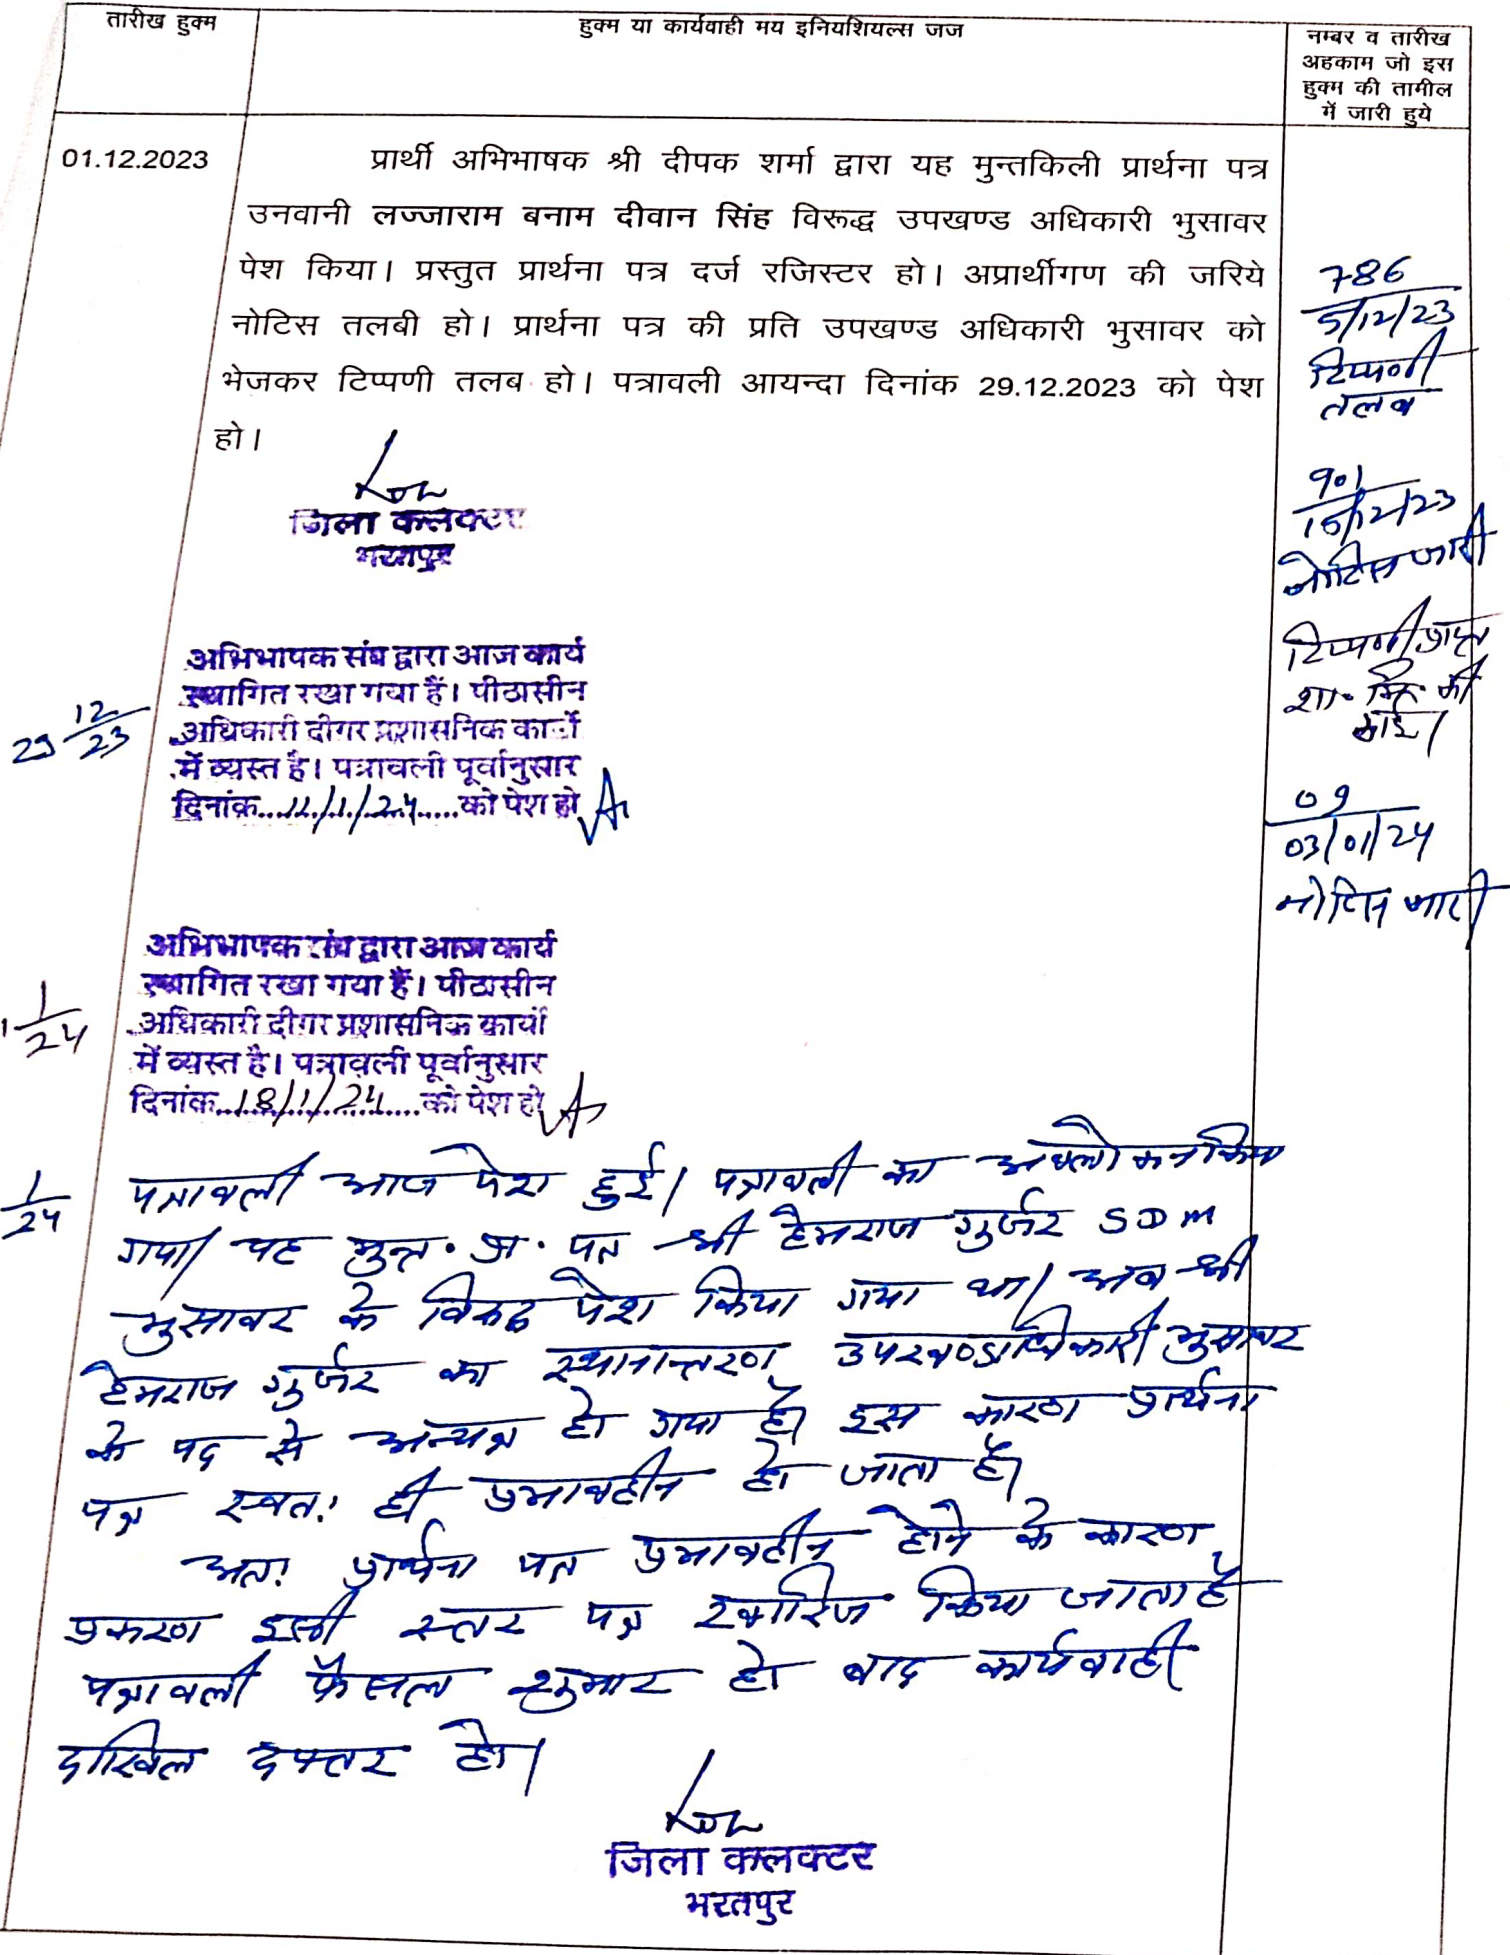 तारीख हुक्म
हुक्म या कार्यवाही मय इनियशियल्स जज
नम्बर व तारीख
अहकाम जो इस
हुक्म की तामील
में जारी हुये
01.12.2023
प्रार्थी अभिभाषक श्री दीपक शर्मा द्वारा यह मुन्तकिली प्रार्थना पत्र
उनवानी लज्जाराम बनाम दीवान सिंह विरूद्ध उपखण्ड अधिकारी भुसावर
पेश किया। प्रस्तुत प्रार्थना पत्र दर्ज रजिस्टर हो। अप्रार्थीगण की जरिये
नोटिस तलबी हो। प्रार्थना पत्र की प्रति उपखण्ड अधिकारी भुसावर को
भेजकर टिप्पणी तलब हो। पत्रावली आयन्दा दिनांक 29.12.2023 को पेश
हो।
जिला कलक्टर
भरतपुर
786
5/12/23
टिप्पणी
तलब
901
15/12/23
नोटिस जारी
टिप्पणी प्राप्त
शा. मि. की
गई।
09
03/01/24
नोटिस जारी
29 12/23
अभिभाषक संघ द्वारा आज कार्य
स्थागित रखा गया हैं। पीठासीन
अधिकारी दीगर प्रशासनिक कार्यो
में व्यस्त है। पत्रावली पूर्वानुसार
दिनांक....11/1/24.....को पेश हो
1/24
अभिभाषक संघ द्वारा आज कार्य
स्थागित रखा गया हैं। पीठासीन
अधिकारी दीगर प्रशासनिक कार्यो
में व्यस्त है। पत्रावली पूर्वानुसार
दिनांक...18/1/24....को पेश हो
1/24
पत्रावली आज पेश हुई। पत्रावली का अवलोकन किया
गया। यह मुन्त. प्रा. पत्र श्री हेमराज गुर्जर SDM
भुसावर के विरूद्ध पेश किया गया था। अब श्री
हेमराज गुर्जर का स्थानान्तरण उपखण्डाधिकारी भुसावर
के पद से अन्यत्र हो गया है। इस कारण प्रार्थना
पत्र स्वत: ही प्रभावहीन हो जाता है।
अत: प्रार्थना पत्र प्रभावहीन होने के कारण
प्रकरण इसी स्तर पर खारिज किया जाता है
पत्रावली फैसल शुमार हो बाद कार्यवाही
दाखिल दफ्तर हो।
जिला कलक्टर
भरतपुर